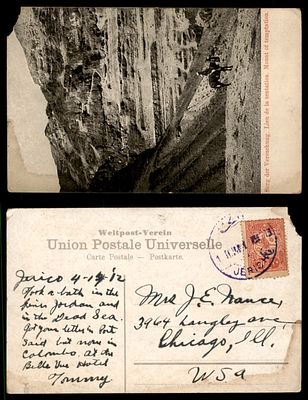 Berg der Versuchung. Lieu de la tentation. Mount of temptation.
Weltpost-Verein
Union Postale Universelle
Carte Postale – Postkarte.
JERICHO
Jerico 4-14-12
Took a bath in the
river Jordan and
in the Dead Sea.
Got your letters in Port
Said but now in
Colombo. at the
Belle Vue Hotel
Tommy
Mrs J. E. Nance,
3964 Langley ave,
Chicago, Ill.
USA